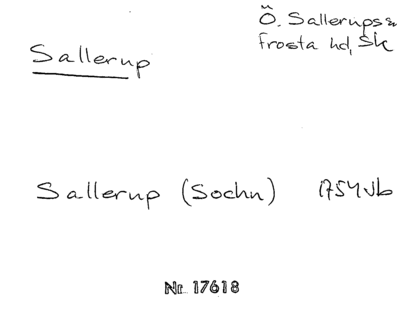 Ö. Sallerups sn
Frosta hd, Sk
Sallerup
Sallerup (Sochn) 1754 Jb
Nr 17618